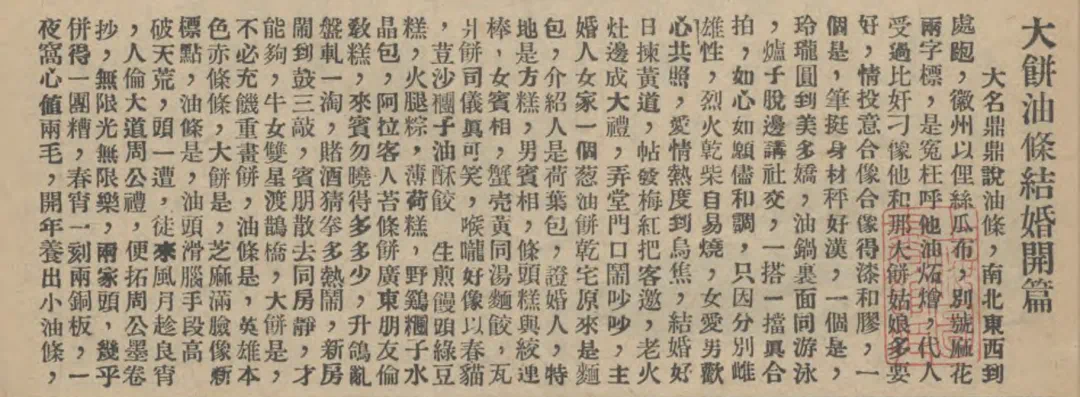 大餅油條結婚開篇
大名鼎鼎說油條，南北東西到
處跑，徽州以俚絲瓜布，別號麻花
兩字標，是寃枉呼他油炻燴，代人
受過比奸刁像他和那大餅姑娘多要
好，情投意合像合像得漆和膠，一
個是，筆挺身材秤好漢，一個是，
玲瓏圓到美多嬌，油鍋裏面同游泳
，爐子脫邊講社交，一搭一擋眞合
拍，如心如願儘和調，只因分別雌
雄性，烈火乾柴自易燒，女愛男歡
心共照，愛情熱度到烏焦，結婚好
日揀黃道，帖發梅紅把客邀，老火
灶邊成大禮，弄堂門口鬧吵吵，主
婚人女家一個葱油餅乾宅原來是麵
包，介紹人是荷葉包，證婚人，特
地是方糕，男賓相，條頭糕與絞連
棒，女賓相，蟹壳黃同湯麵餃，瓦
爿餅司儀眞可笑，喉嚨好像以春貓
，荳沙糰子油酥餃　生煎饅頭綠豆
糕，火腿粽，薄荷糕，野鷄糰子水
晶包，阿拉客人苔條餅廣東朋友倫
敎糕，來賓勿曉得多多少，升鴿亂
盤軋一淘，賭酒猜拳多熱鬧，新房
鬧到鼓三敲，賓朋散去同房靜，才
能夠，牛女雙星渡鵲橋，大餅是，
不必充饑重畫餅，油條是，英雄本
色赤條條，大餅是，芝麻滿臉像新
標點，油條是，油頭滑腦手段高
破天荒，頭一遭，徒來風月趁良宵
，人倫大道周公禮，便拓周公墨卷
抄，無限光無限樂，兩家頭，幾乎
併得一團糟，春宵一刻兩銅板，一
夜窩心値兩毛，開年養出小油條，